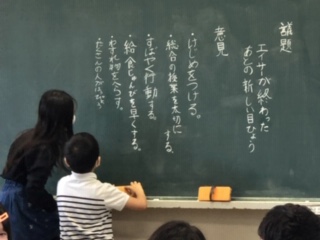 議題
エイサーが終わった
あとの新しい目ひょう
意見
・けじめをつける。
・総合の授業を大切にする。
・すばやく行動する。
・給食じゅんびを早くする。
・わすれ物をへらす。